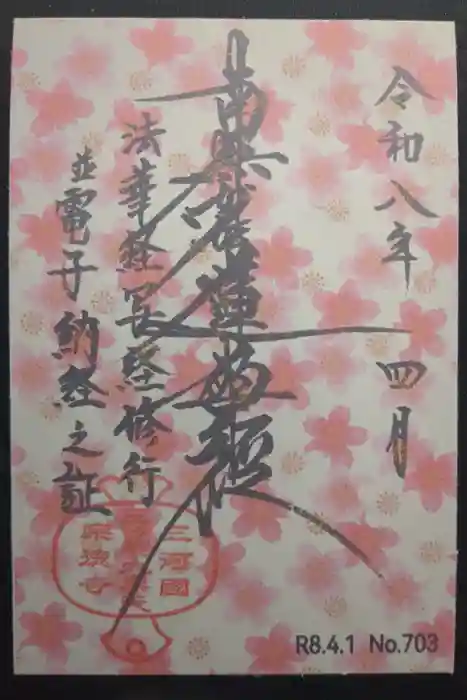 令和八年 四月
南無妙法蓮華経
法華経写経修行
並電子納経之証
三河國
R8.4.1 No.703